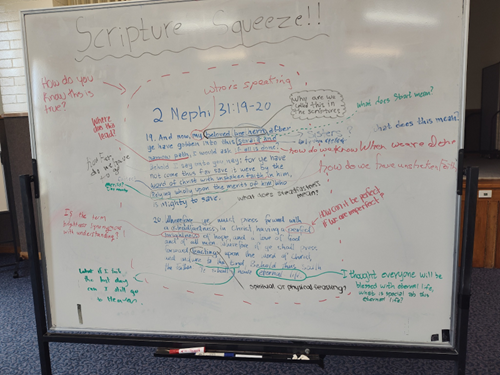 Scripture Squeeze!!
How do you
know this is
true?
who's speaking
2 Nephi 31:19-20
Why are we
called this in
the scriptures
what does Strait mean?
what does this mean?
Where
does this
lead?
19. And now, my beloved brethren, after
ye have gotten into this strait and
narrow path, I would ask if all is done?
Behold, I say unto you, Nay; for ye have
not come thus far save it were by the
word of Christ with unshaken faith in him,
relying wholly upon the merits of him who
is mighty to save.
how do we know when we are done
how do we have
what does steadfastness
mean?
20. Wherefore, ye must press forward with
a steadfastness in Christ, having a perfect
brightness of hope, and a love of God
and of all men. Wherefore, if ye shall press
forward, feasting upon the word of Christ,
and endure to the end, behold, thus saith
the Father: Ye shall have eternal life.
How can I be perfect
if we are imperfect?
Is the
brightness
with understanding?
What if I fail
the last day
can I still go
to Heaven?
spiritual or physical feasting?
I thought everyone will be
blessed with eternal life,
what is special about this
eternal life?